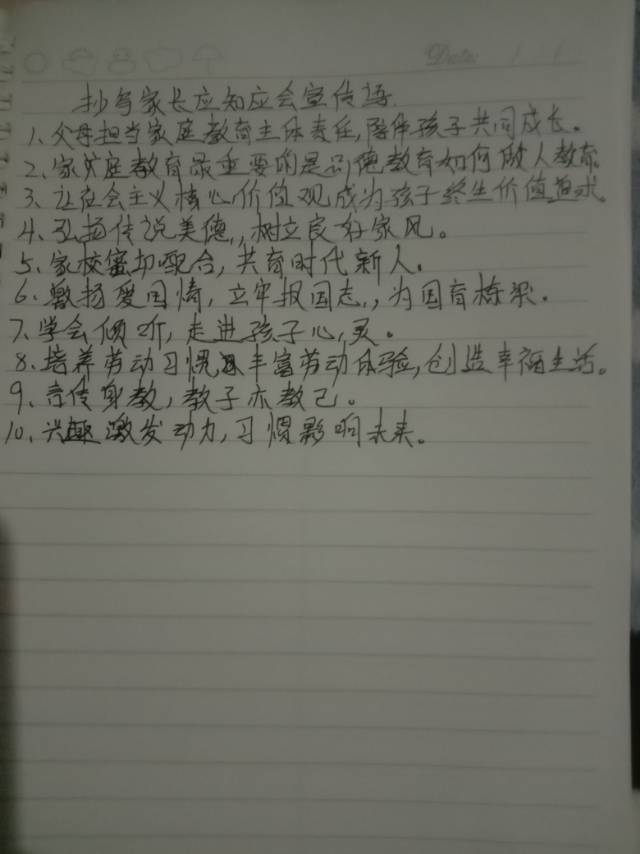 Date: / /
抄写家长应知应会宣传语
1、父母担当家庭教育主体责任,陪伴孩子共同成长。
2、家庭教育最重要的是品德教育如何做人教育
3、让社会主义核心价值观成为孩子终生价值追求。
4、弘扬传说美德,树立良好家风。
5、家校密切配合,共育时代新人.
6、激扬爱国情,立牢报国志,为国育栋梁.
7、学会倾听,走进孩子心灵。
8、培养劳动习惯丰富劳动体验,创造幸福生活。
9、言传身教,教子亦教己。
10、兴趣激发动力,习惯影响未来。